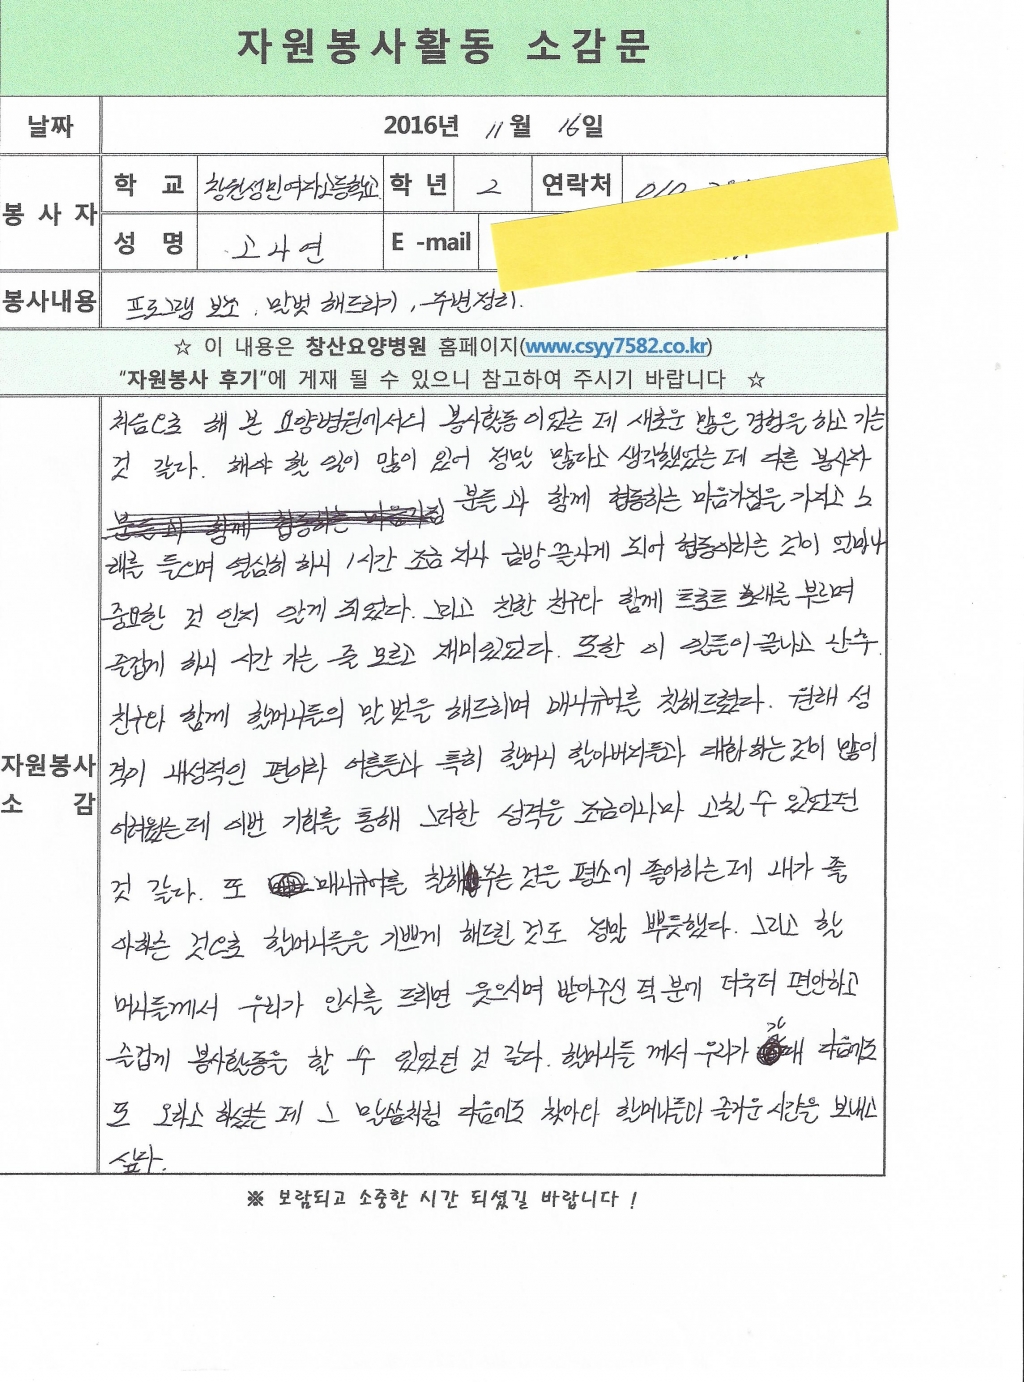 자원봉사활동 소감문
날짜 2016년 11월 16일
봉사자 학 교 창원성민여자고등학교 학 년 2 연락처 010
성 명 고사연 E -mail
봉사내용 프로그램 보조, 말벗 해드리기, 주변정리.
☆ 이 내용은 창산요양병원 홈페이지(www.csyy7582.co.kr)
“자원봉사 후기”에 게재 될 수 있으니 참고하여 주시기 바랍니다 ☆
자원봉사 소 감
처음으로 해 본 요양병원에서의 봉사활동이었는 데 새로운 많은 경험을 하고 가는
것 같다. 해야 할 일이 많이 있어 정말 많다고 생각했었는 데 다른 봉사자
분들과 함께 협동하는 마음가짐 분들 과 함께 협동하는 마음가짐을 가지고 노
래를 들으며 열심히 하니 1시간 조금 지나 금방 끝나게 되어 협동이라는 것이 얼마나
중요한 것 인지 알게 되었다. 그리고 친한 친구와 함께 트로트 노래를 부르며
즐겁게 하니 시간 가는 줄 모르고 재미있었다. 또한 이 일들이 끝나고 난 후.
친구와 함께 할머니들의 말 벗을 해드리며 매니큐어를 칠해드렸다. 원래 성
격이 내성적인 편이라 어른들과 특히 할머니 할아버지들과 대화하는 것이 많이
어려웠는 데 이번 기회를 통해 그러한 성격을 조금이나마 고칠 수 있었던
것 같다. 또 매니큐어를 칠해주는 것을 평소에 좋아하는 데 내가 좋
아하는 것으로 할머니들을 기쁘게 해드린 것도 정말 뿌듯했다. 그리고 할
머니들께서 우리가 인사를 드리면 웃으시며 받아주신 덕분에 더욱더 편안하고
즐겁게 봉사활동을 할 수 있었던 것 같다. 할머니들 께서 우리가 갈때 다음에도
또 오라고 하셨는 데 그 말씀처럼 다음에도 찾아와 할머니들과 즐거운 시간을 보내고
싶다.
※ 보람되고 소중한 시간 되셨길 바랍니다 !